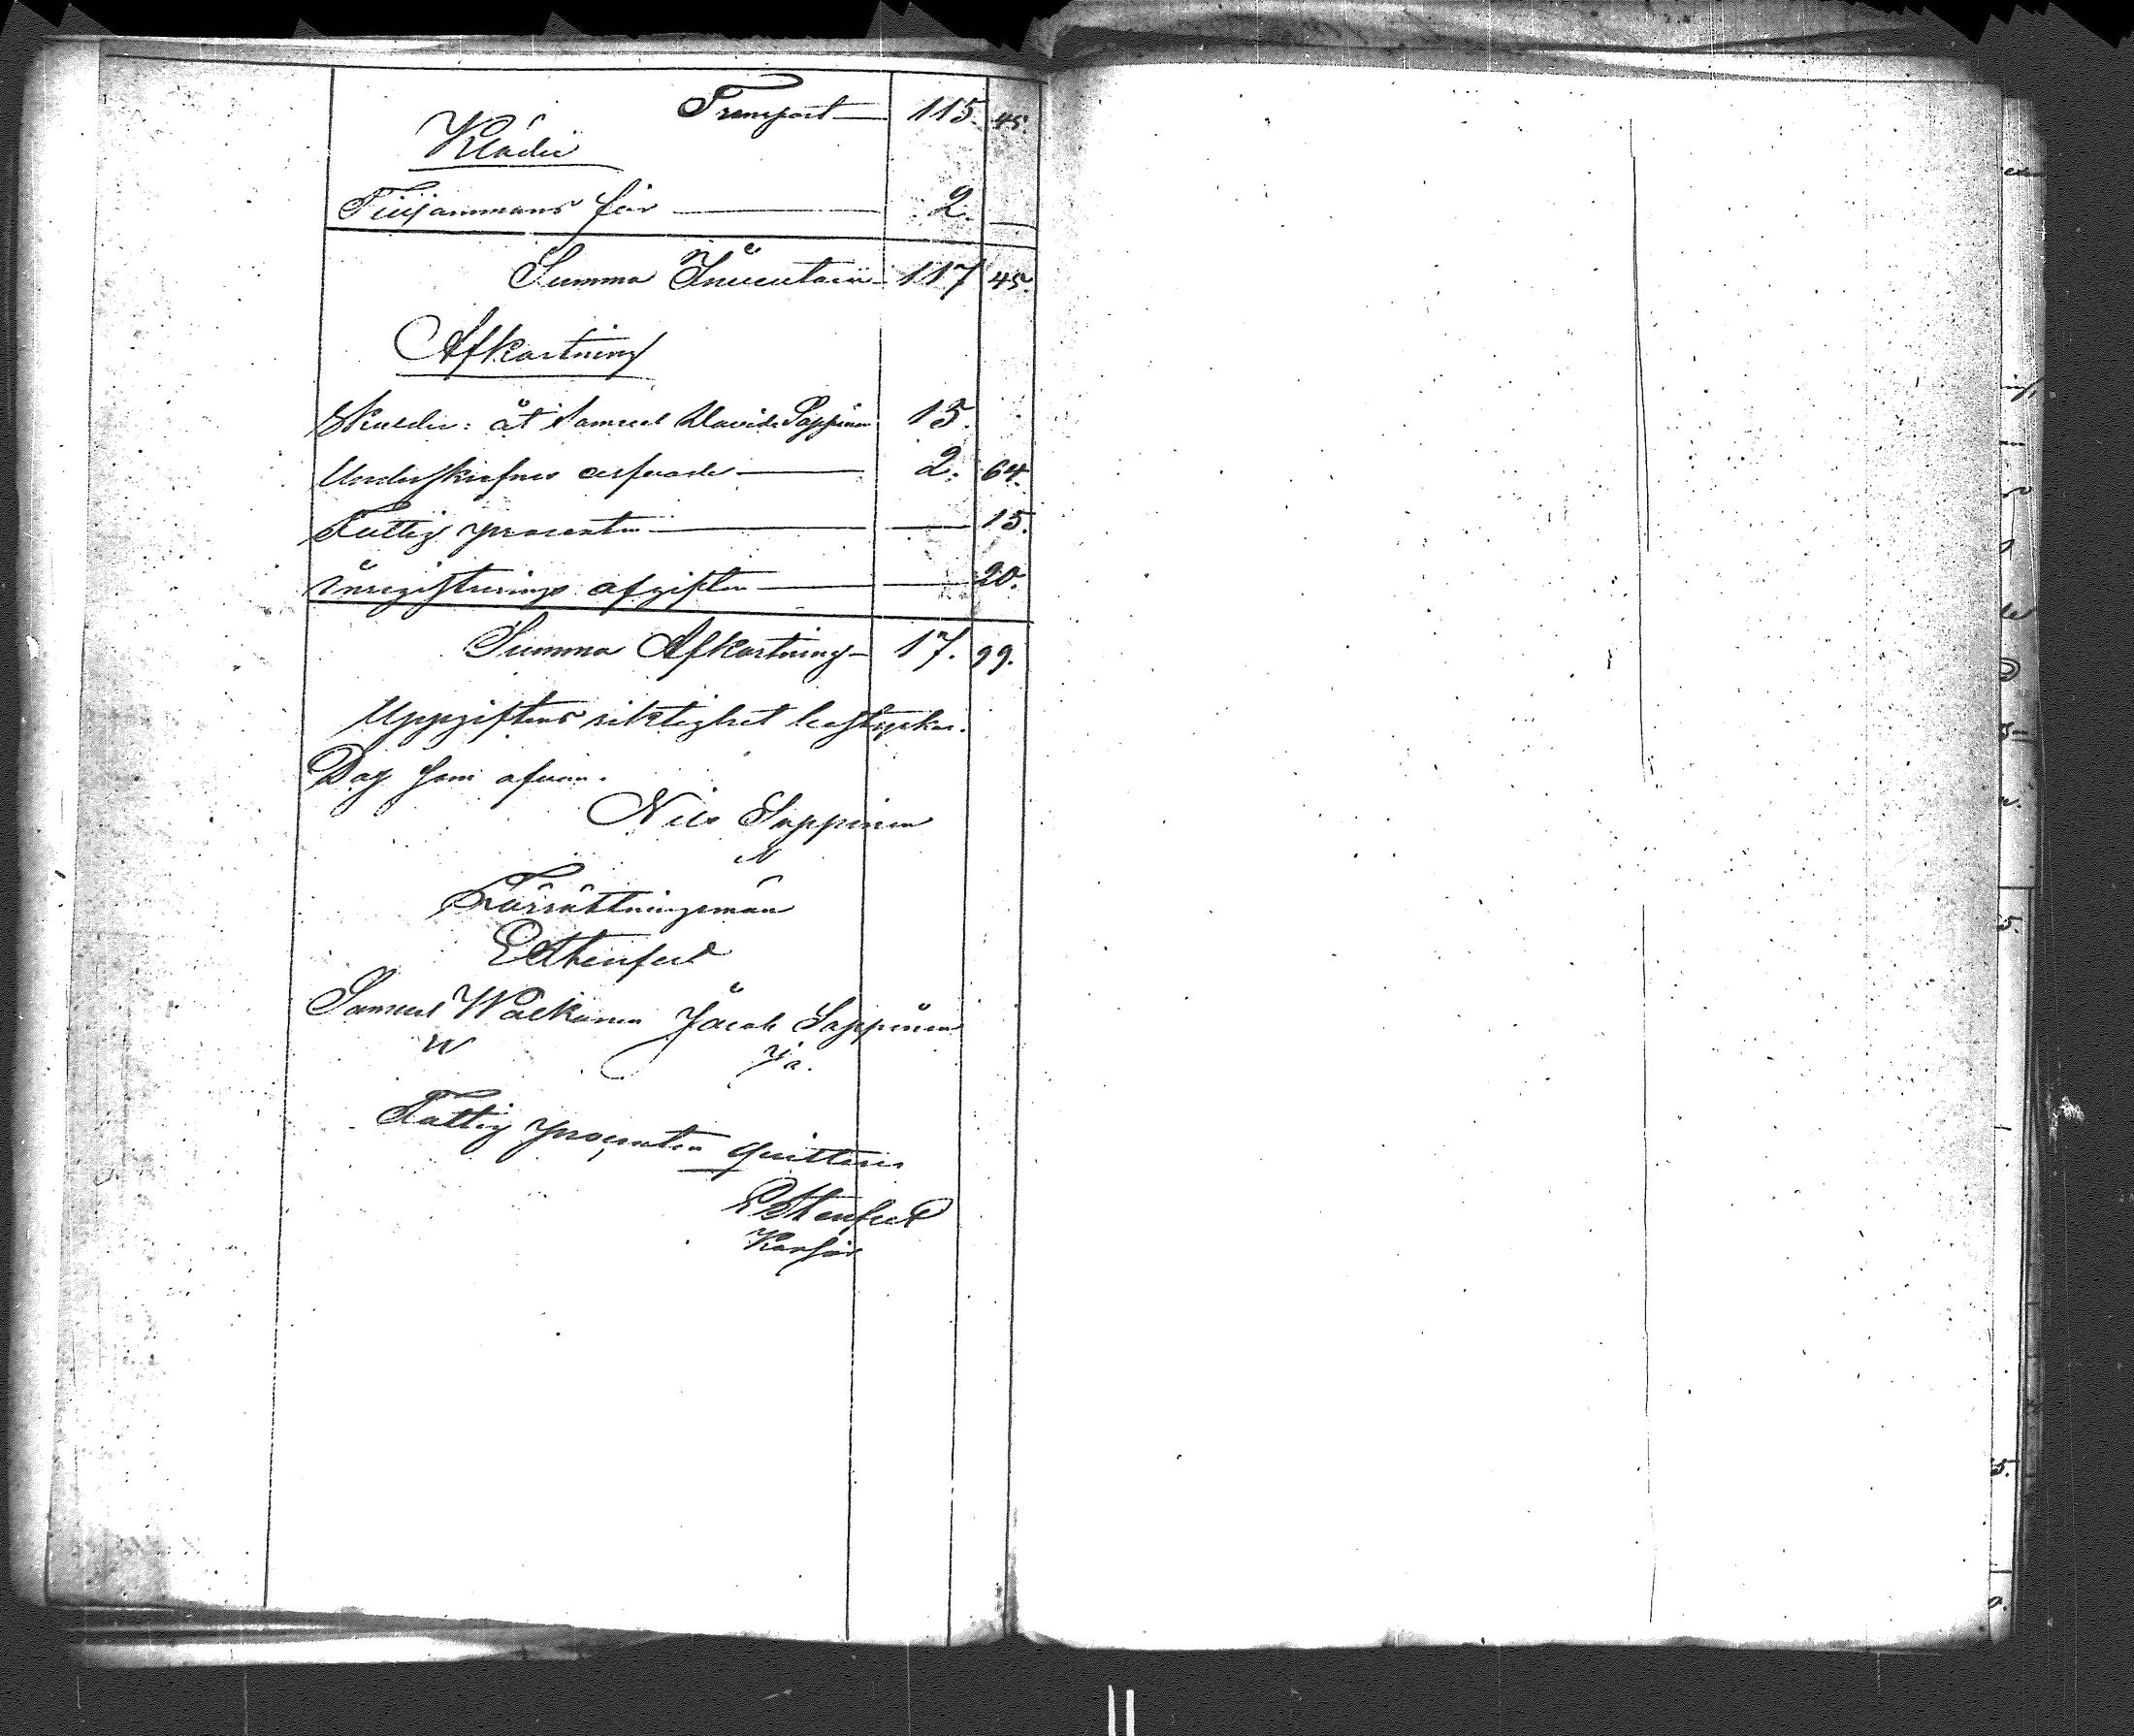 Transport — 115. 45.
Kläder
Tillsammans för — 2.
Summa Inventarii 117 45.
Afkortning
Skulder: åt Samuel Davids. Sappinen 15.
Underskrefnes arfvode — 2. 64.
Fattig procenten — 15.
inregistrerings afgiften — 20.
Summa Afkortning — 17. 99.
Uppgiftens riktighet bestyrkes.
Dag som ofvan.
Nils Sappinen
N
Förrättningsmän
Samuel Walkonen Jacob Sappinen
W Ja.
Fattig procenten quitteras
Kassör